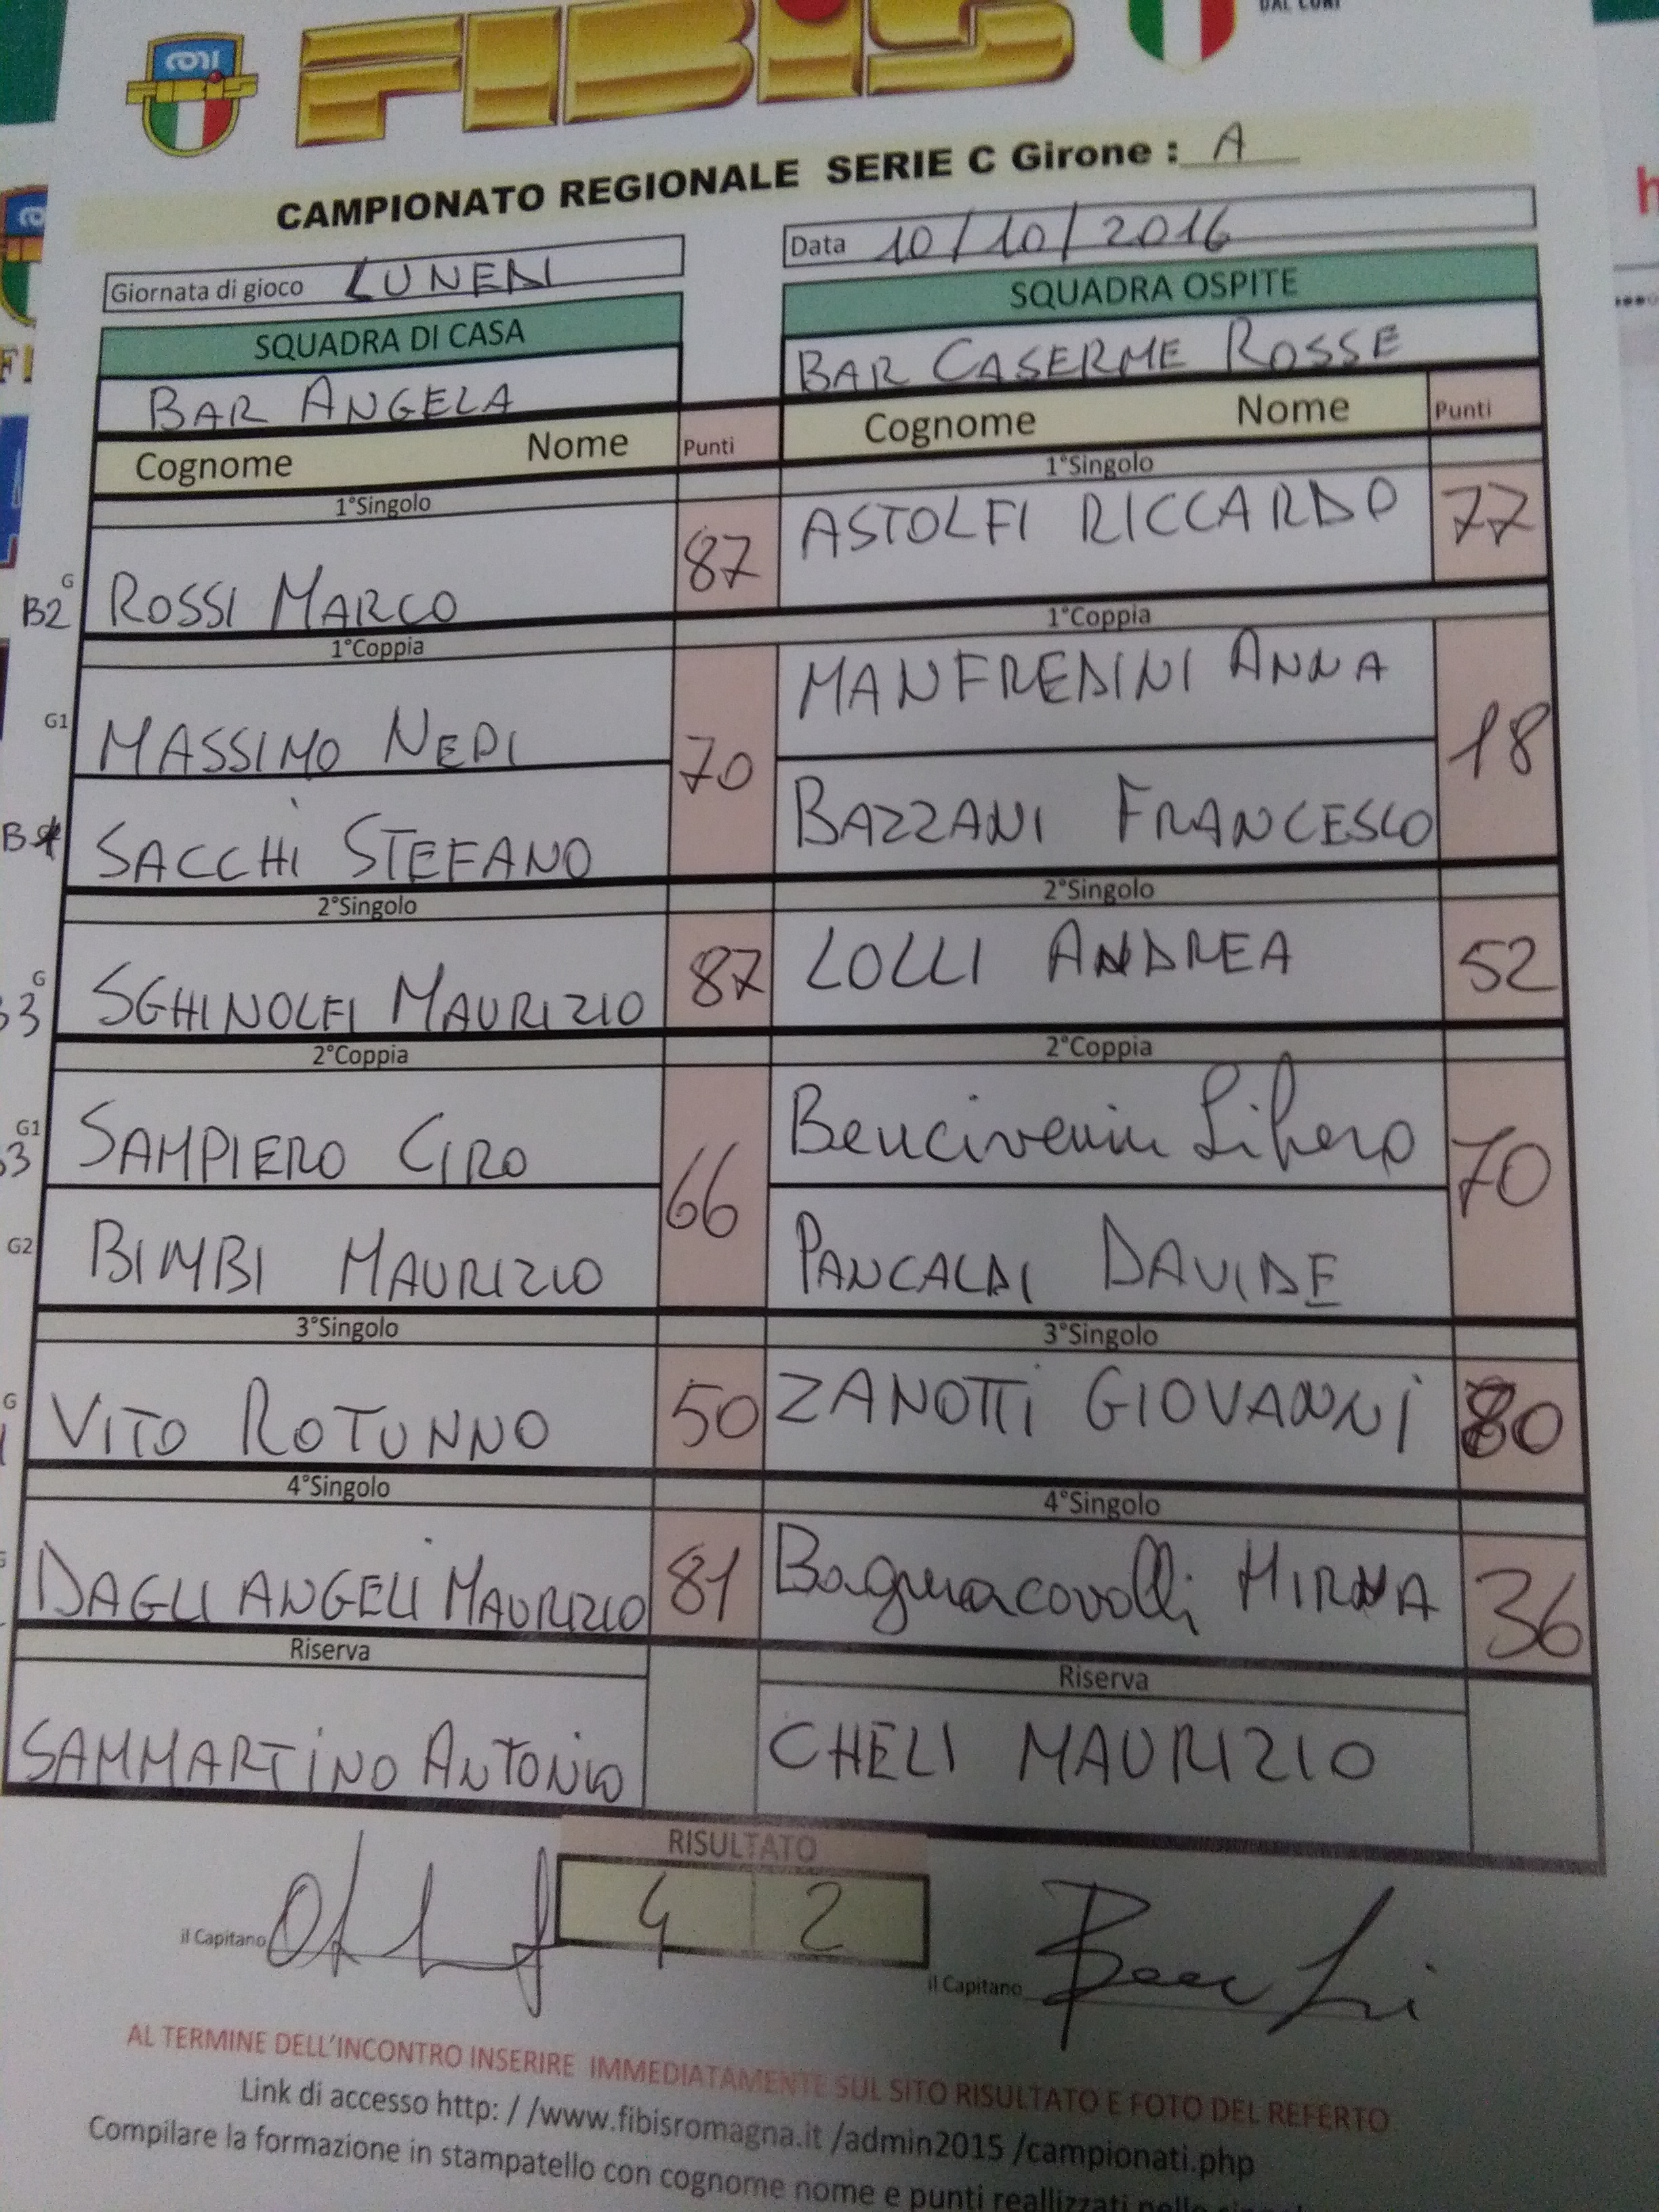 CONI
FIBIS
DAL CONI
CAMPIONATO REGIONALE SERIE C Girone : A
Giornata di gioco LUNEDI
Data 10/10/2016
SQUADRA DI CASA
SQUADRA OSPITE
BAR ANGELA
BAR CASERME ROSSE
Cognome Nome Punti
Cognome Nome Punti
1°Singolo
1°Singolo
G
B2 ROSSI MARCO 87
ASTOLFI RICCARDO 77
1°Coppia
1°Coppia
G1 MASSIMO NEDI 70
MANFREDINI ANNA 18
SACCHI STEFANO
BAZZANI FRANCESCO
2°Singolo
2°Singolo
G
SGHINOLFI MAURIZIO 87
LOLLI ANDREA 52
2°Coppia
2°Coppia
G1
SAMPIERO CIRO 66
Bencivenni Libero 70
G2 BIMBI MAURIZIO
PANCALDI DAVIDE
3°Singolo
3°Singolo
G
VITO ROTUNNO 50
ZANOTTI GIOVANNI 80
4°Singolo
4°Singolo
DAGLI ANGELI MAURIZIO 81
Bagnacavalli MIRNA 36
Riserva
Riserva
SAMMARTINO ANTONIO
CHELI MAURIZIO
RISULTATO
4 2
il Capitano
il Capitano
AL TERMINE DELL'INCONTRO INSERIRE IMMEDIATAMENTE SUL SITO RISULTATO E FOTO DEL REFERTO
Link di accesso http: / /www.fibisromagna.it /admin2015 /campionati.php
Compilare la formazione in stampatello con cognome nome e punti reallizzati